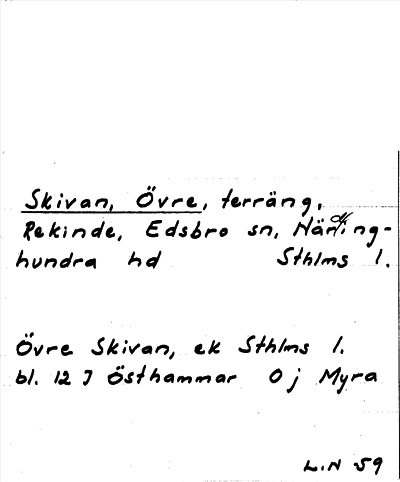 Skivan, Övre, terräng,
Rekinde, Edsbro sn, Närding-
hundra hd Sthlms l.
Övre Skivan, ek Sthlms l.
bl. 12 J Östhammar 0 j Myra
L.N 59